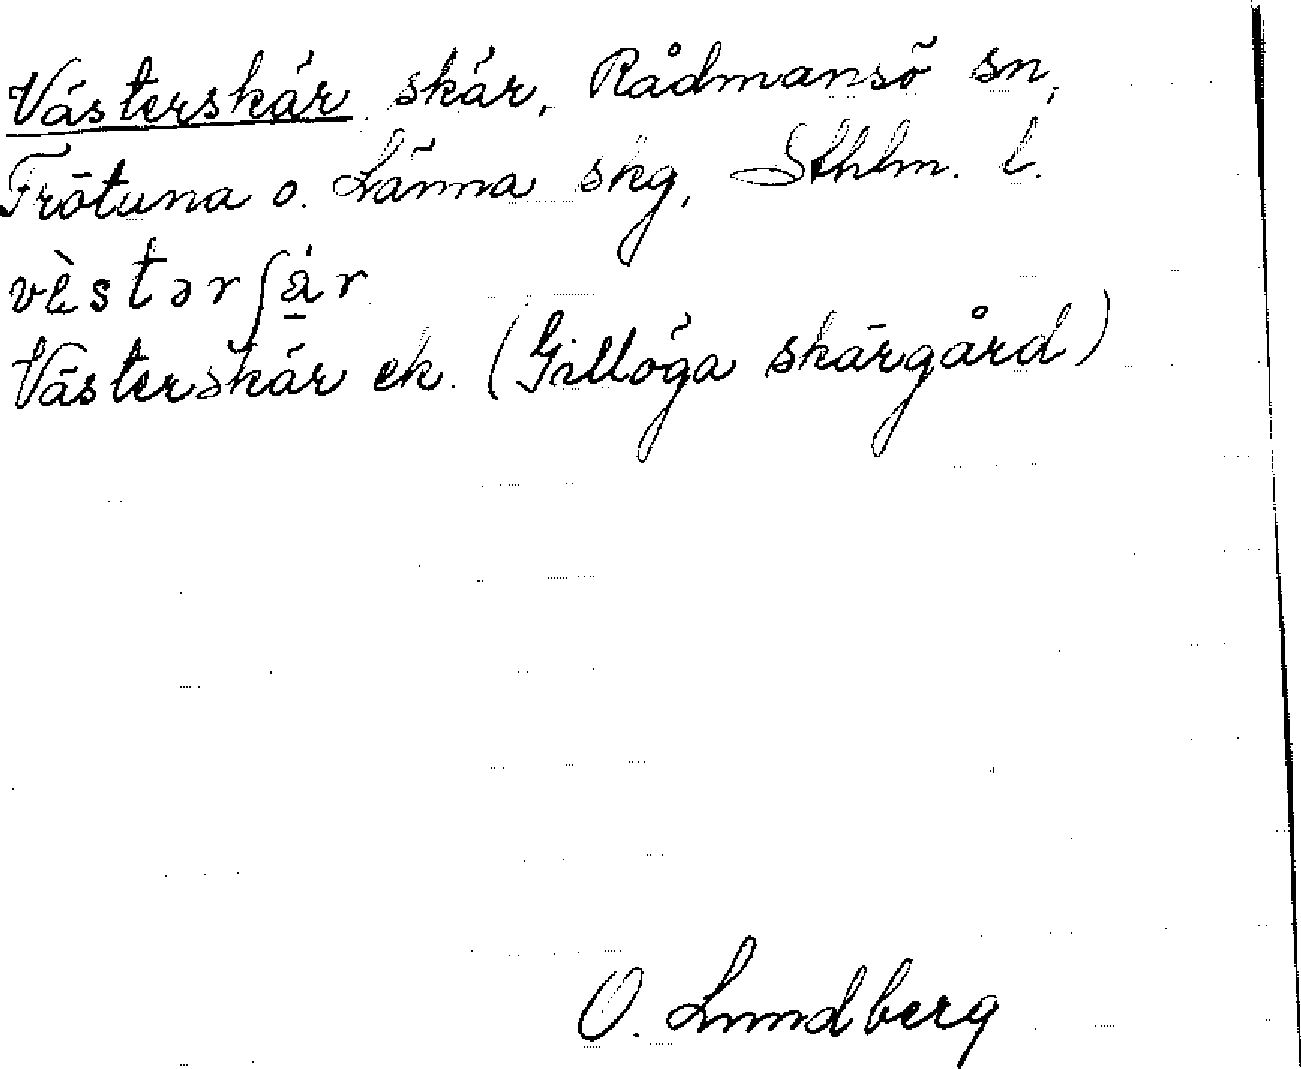 Västerskär skär, Rådmansö sn,
Frötuna o. Länna skg, Sthlm. l.
vèstərʃä́r
Västerskär ek. (Gillöga skärgård)
O. Lundberg